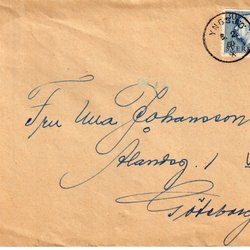 YNGSJÖ
Fru Una Johansson
Ålandsg. 1
Göteborg